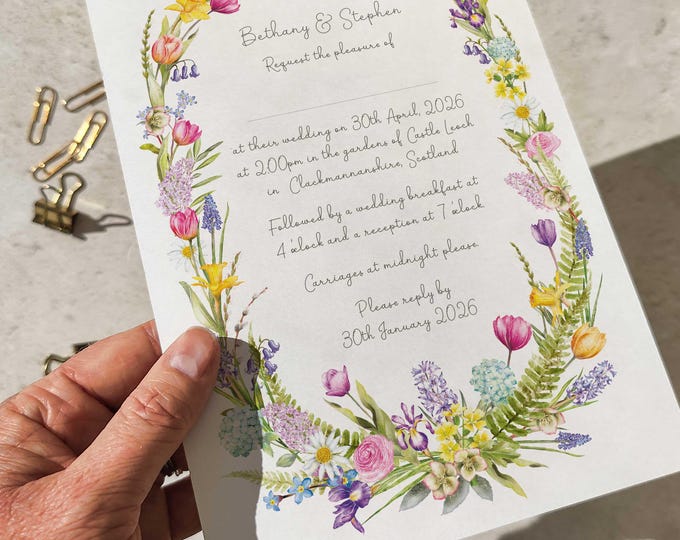 Bethany & Stephen
Request the pleasure of
at their wedding on 30th April, 2026
at 2.00pm in the gardens of Castle Leoch
in Clackmannanshire, Scotland
Followed by a wedding breakfast at
4 'o'clock and a reception at 7 'o'clock
Carriages at midnight please
Please reply by
30th January 2026